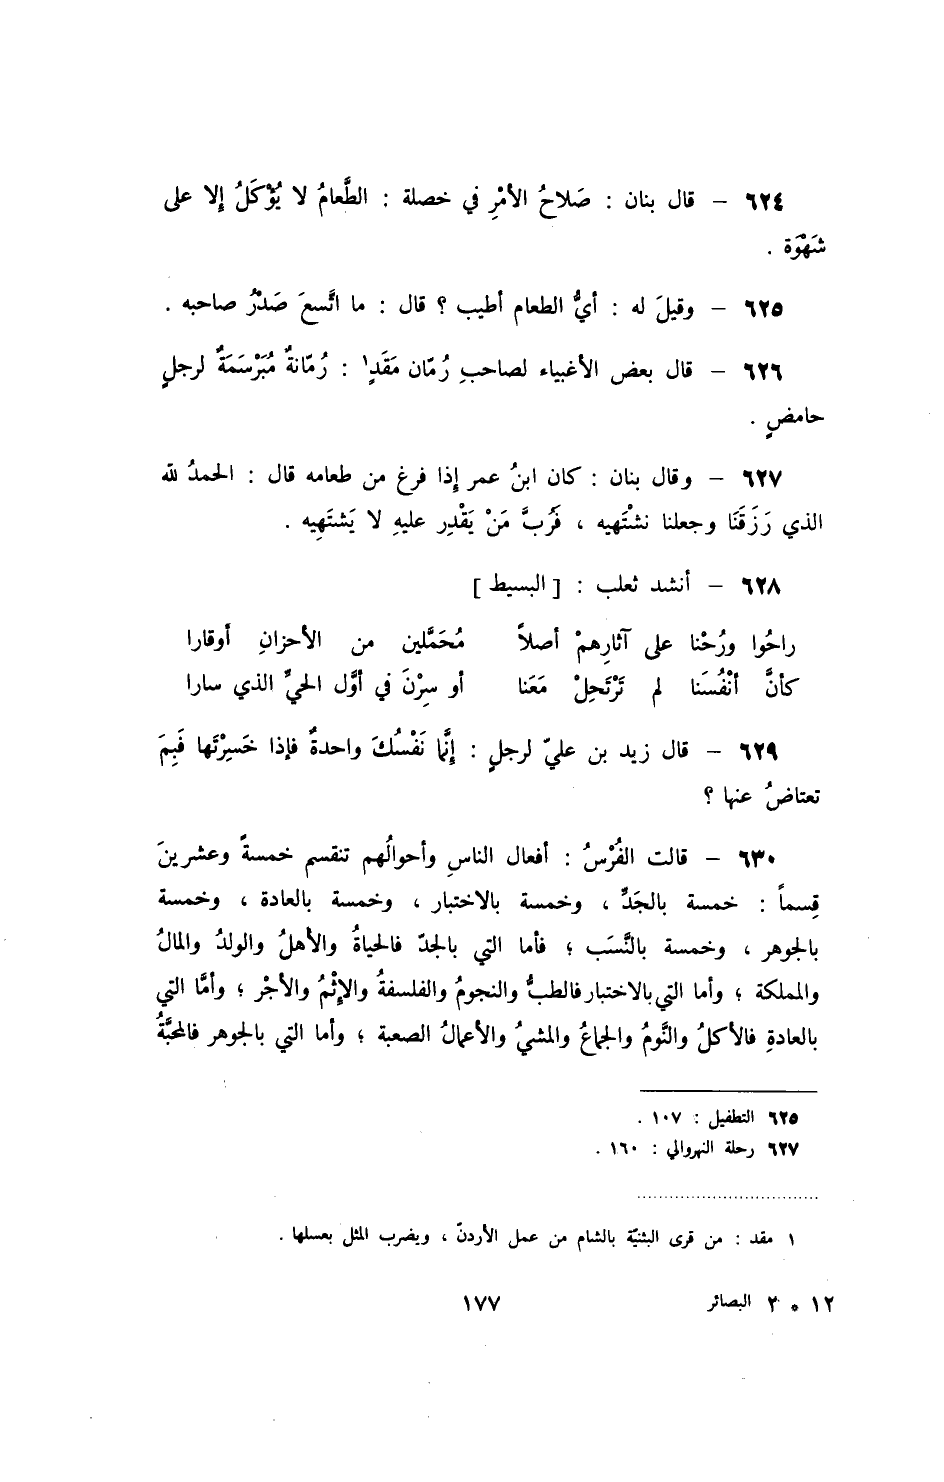 ٦٢٤ – قال بنان : صَلاحُ الأمْرِ في خصلة : الطَّعامُ لا يُؤكَلُ إلا على
شَهْوَة .
٦٢٥ – وقيلَ له : أيُّ الطعام أطيب ؟ قال : ما اتَّسعَ صَدْرُ صاحبه .
٦٢٦ – قال بعض الأغبياء لصاحبِ رُمّان مَقَدٍ١ : رُمّانةٌ مُبَرْسَمَةٌ لرجلٍ
حامضٍ .
٦٢٧ – وقال بنان : كان ابنُ عمر إذا فرغ من طعامه قال : الحمدُ لله
الذي رَزَقَنَا وجعلنا نشْتَهيه ، فَرُبَّ مَنْ يَقْدِر عليهِ لا يَشتَهِيه .
٦٢٨ – أنشد ثعلب : [ البسيط ]
راحُوا ورُحْنا على آثارِهمْ أصلاً مُحَمَّلين من الأحزانِ أوقارا
كأنَّ أنْفُسَنا لم تَرْتَحِلْ مَعَنا أو سِرْنَ في أوَّل الحيِّ الذي سارا
٦٢٩ – قال زيد بن عليّ لرجلٍ : إنَّما نَفْسُكَ واحدةٌ فإذا خَسِرْتَها فَبِمَ
تعتاضُ عنها ؟
٦٣٠ – قالت الفُرْسُ : أفعال الناسِ وأحوالُهم تنقسم خمسةً وعشرينَ
قِسماً : خمسة بالجَدِّ ، وخمسة بالاختبار ، وخمسة بالعادة ، وخمسة
بالجوهر ، وخمسة بالنَّسَب ؛ فأما التي بالجدّ فالحياةُ والأهلُ والولدُ والمالُ
والمملكة ؛ وأما التي بالاختبار فالطبُّ والنجومُ والفلسفةُ والإثْمُ والأجْر ؛ وأمَّا التي
بالعادةِ فالأكلُ والنَّومُ والجماعُ والمشيُ والأعمالُ الصعبة ؛ وأما التي بالجوهر فالمحبَّةُ
٦٢٥ التطفيل : ١٠٧ .
٦٢٧ رحلة النهروالي : ١٦٠ .
١ مقد : من قرى البثنيّة بالشام من عمل الأردنّ ، ويضرب المثل بعسلها .
١٢ * ٢ البصائر ١٧٧